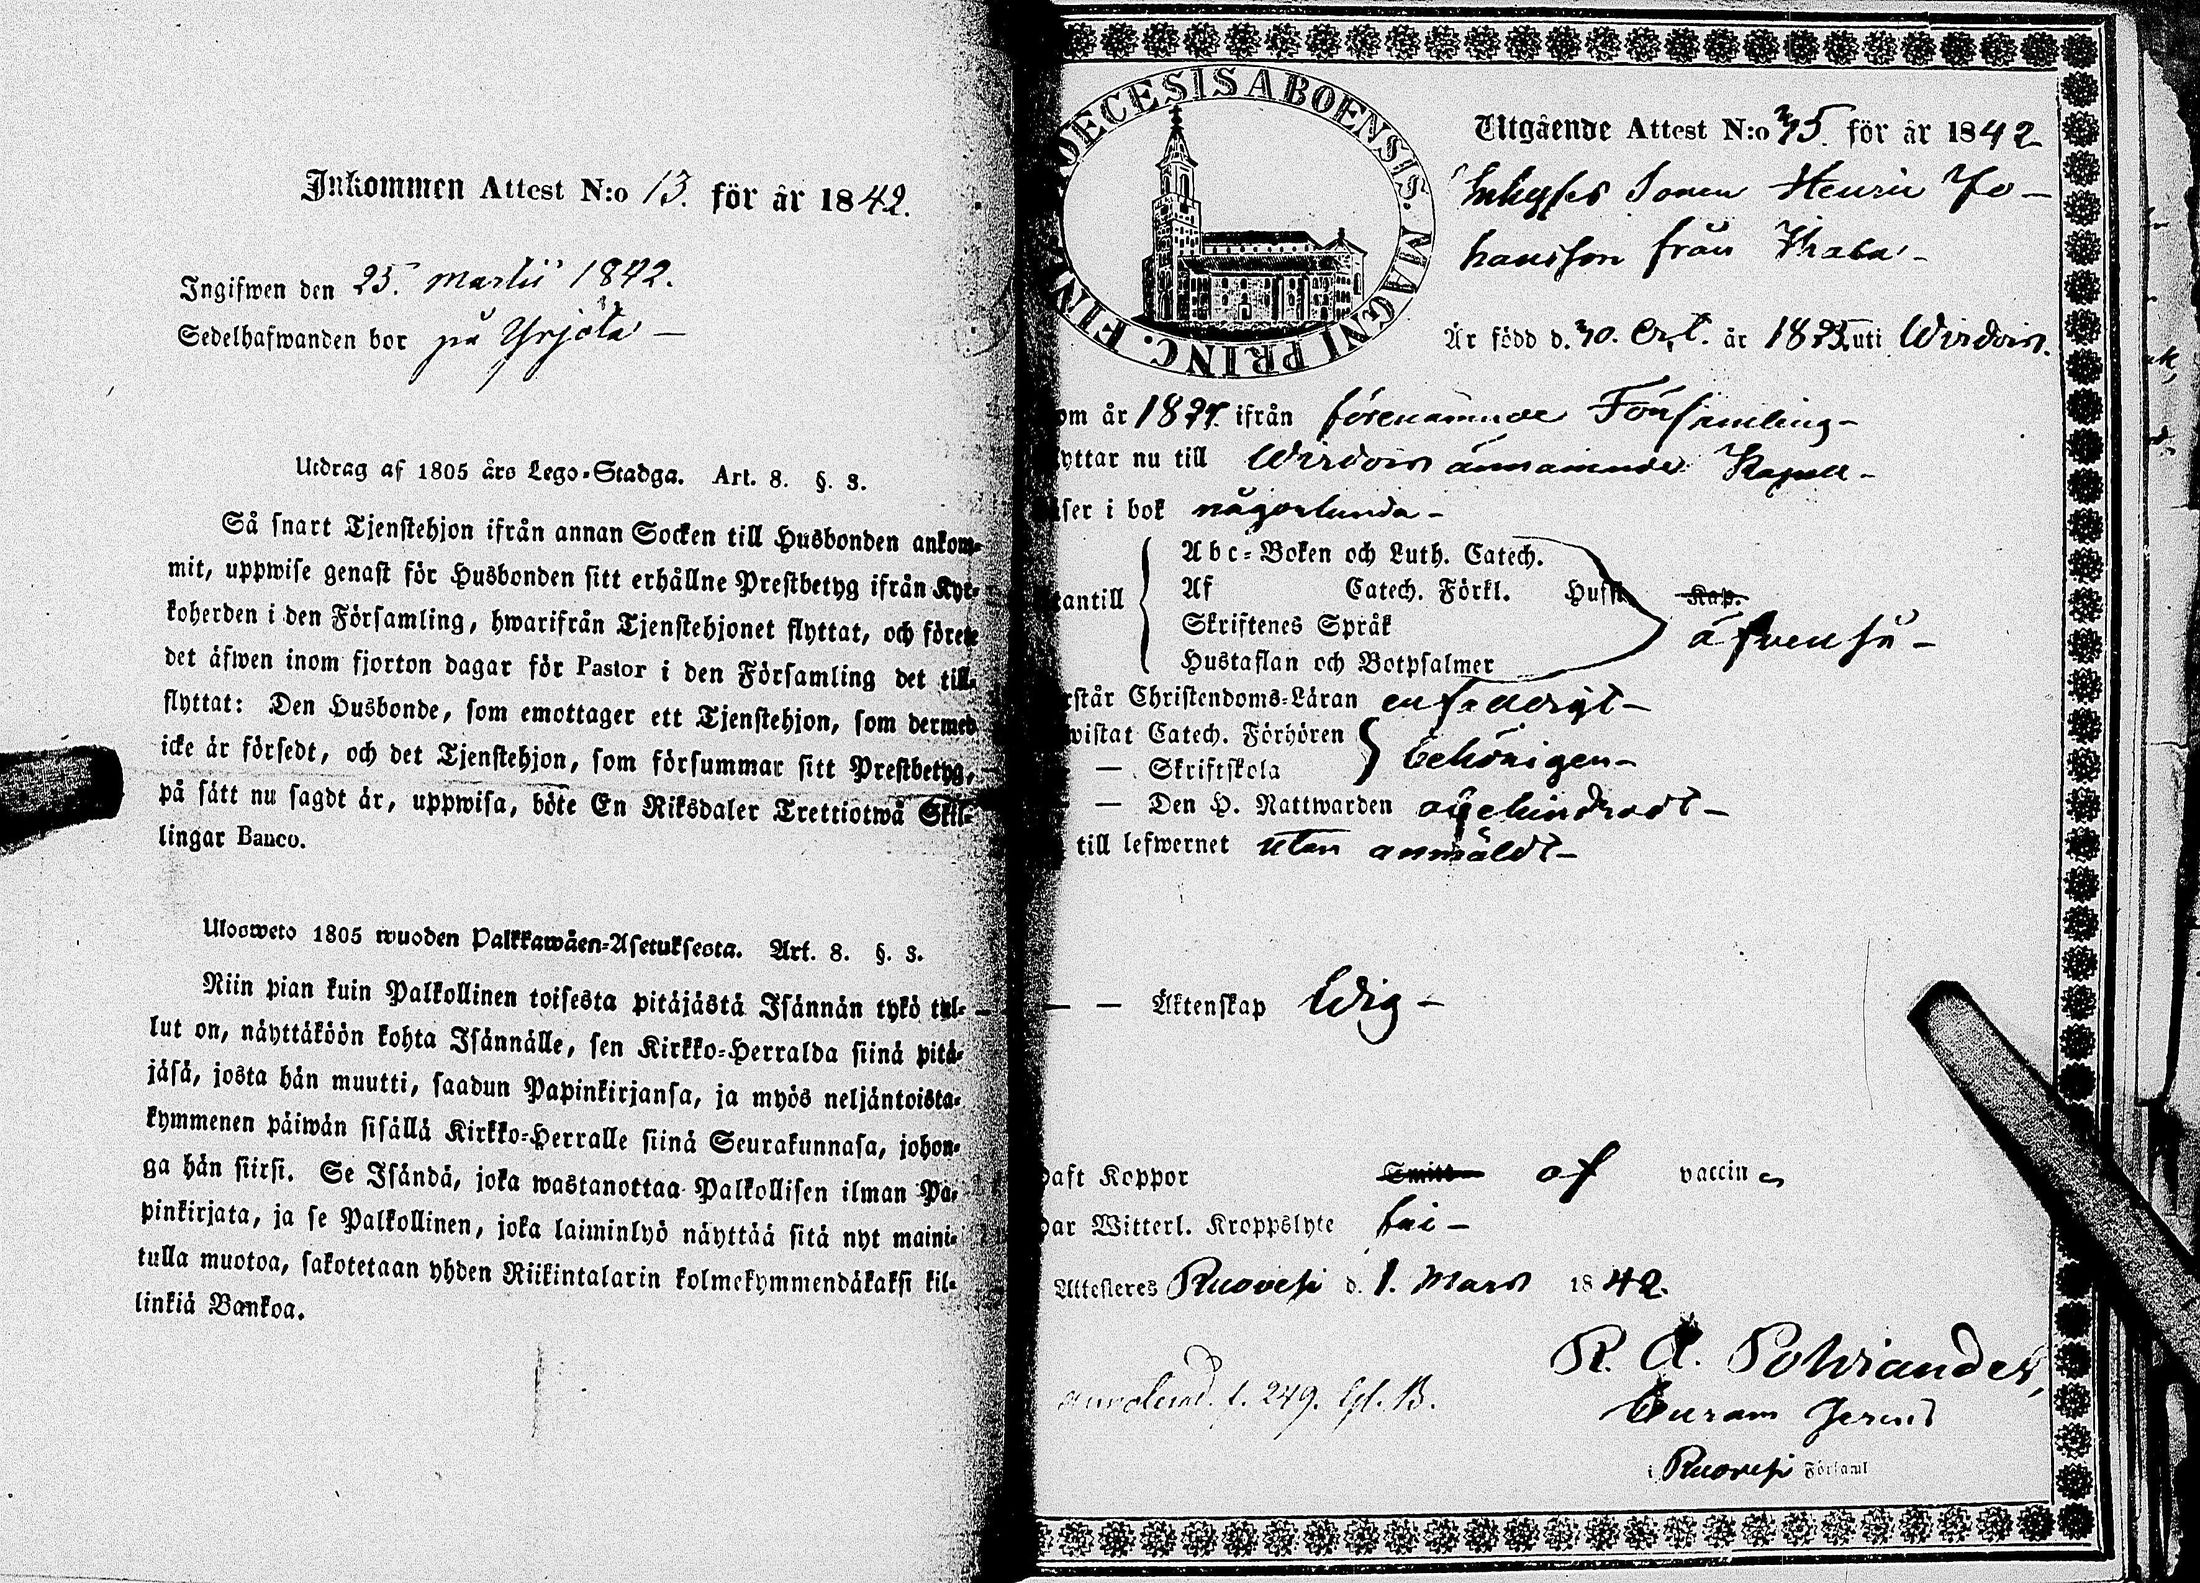 Inkommen Attest N:o 13. för år 1842.
Ingifwen den 25. Martii 1842.
Sedelhafwanden bor på Yrjölä —
Utdrag af 1805 års Lego-Stadga. Art. 8. §. 3.
Så snart Tjenstehjon ifrån annan Socken till Husbonden ankom-
mit, uppwise genast för Husbonden sitt erhållne Prestbetyg ifrån Kyr-
koherden i den Församling, hwarifrån Tjenstehjonet flyttat, och förete
det äfwen inom fjorton dagar för Pastor i den Församling det till-
flyttat: Den Husbonde, som emottager ett Tjenstehjon, som dermed
icke är försedt, och det Tjenstehjon, som försummar sitt Prestbetyg,
på sätt nu sagdt är, uppwisa, böte En Riksdaler Trettiotwå Skil-
lingar Banco.
Ulosweto 1805 wuoden Palkkawäen-Asetuksesta. Art. 8. §. 3.
Niin pian kuin Palkollinen toisesta pitäjästä Isännän tykö tul-
lut on, näyttäköön kohta Isännälle, sen Kirkko-Herralda siinä pitä-
jäsä, josta hän muutti, saadun Papinkirjansa, ja myös neljäntoista-
kymmenen päiwän sisällä Kirkko-Herralle siinä Seurakunnasa, johon-
ga hän siirsi. Se Isändä, joka wastanottaa Palkollisen ilman Pa-
pinkirjata, ja se Palkollinen, joka laiminlyö näyttää sitä nyt maini-
tulla muotoa, sakotetaan yhden Riikintalarin kolmekymmendäkaksi kil-
linkiä Bankoa.
DIOECESIS ABOENSIS. MAGNI PRINC. FIN
Utgående Attest N:o 75. för år 1842
Inhyses Sonen Henric Jo-
hansson från
Är född d. 30. Oct. år uti Wirdois.
om år ifrån förenämnde Församling-
yttar nu till Wirdois Kapell-
äser i bok någorlunda-
Abc-Boken och Luth. Catech.
Af Catech. Förkl. Husfl. Kap.
tantill
Skriftenes Språk
äfwen så-
Hustaflan och Botpsalmer
rstår Christendoms-Läran enfaldigt-
wistat Catech. Förhören
— Skriftskola
behörigen-
— Den H. Nattwarden ohehindradt-
till lefwernet utan anmäldt-
— — Äktenskap ledig-
aft Koppor Smitt- af vaccin
ar Witterl. Kroppslyte fri-
Attesteres Ruovesi d. 1. Mars 1842.
R. A. Polviander,
i Ruovesi Församl